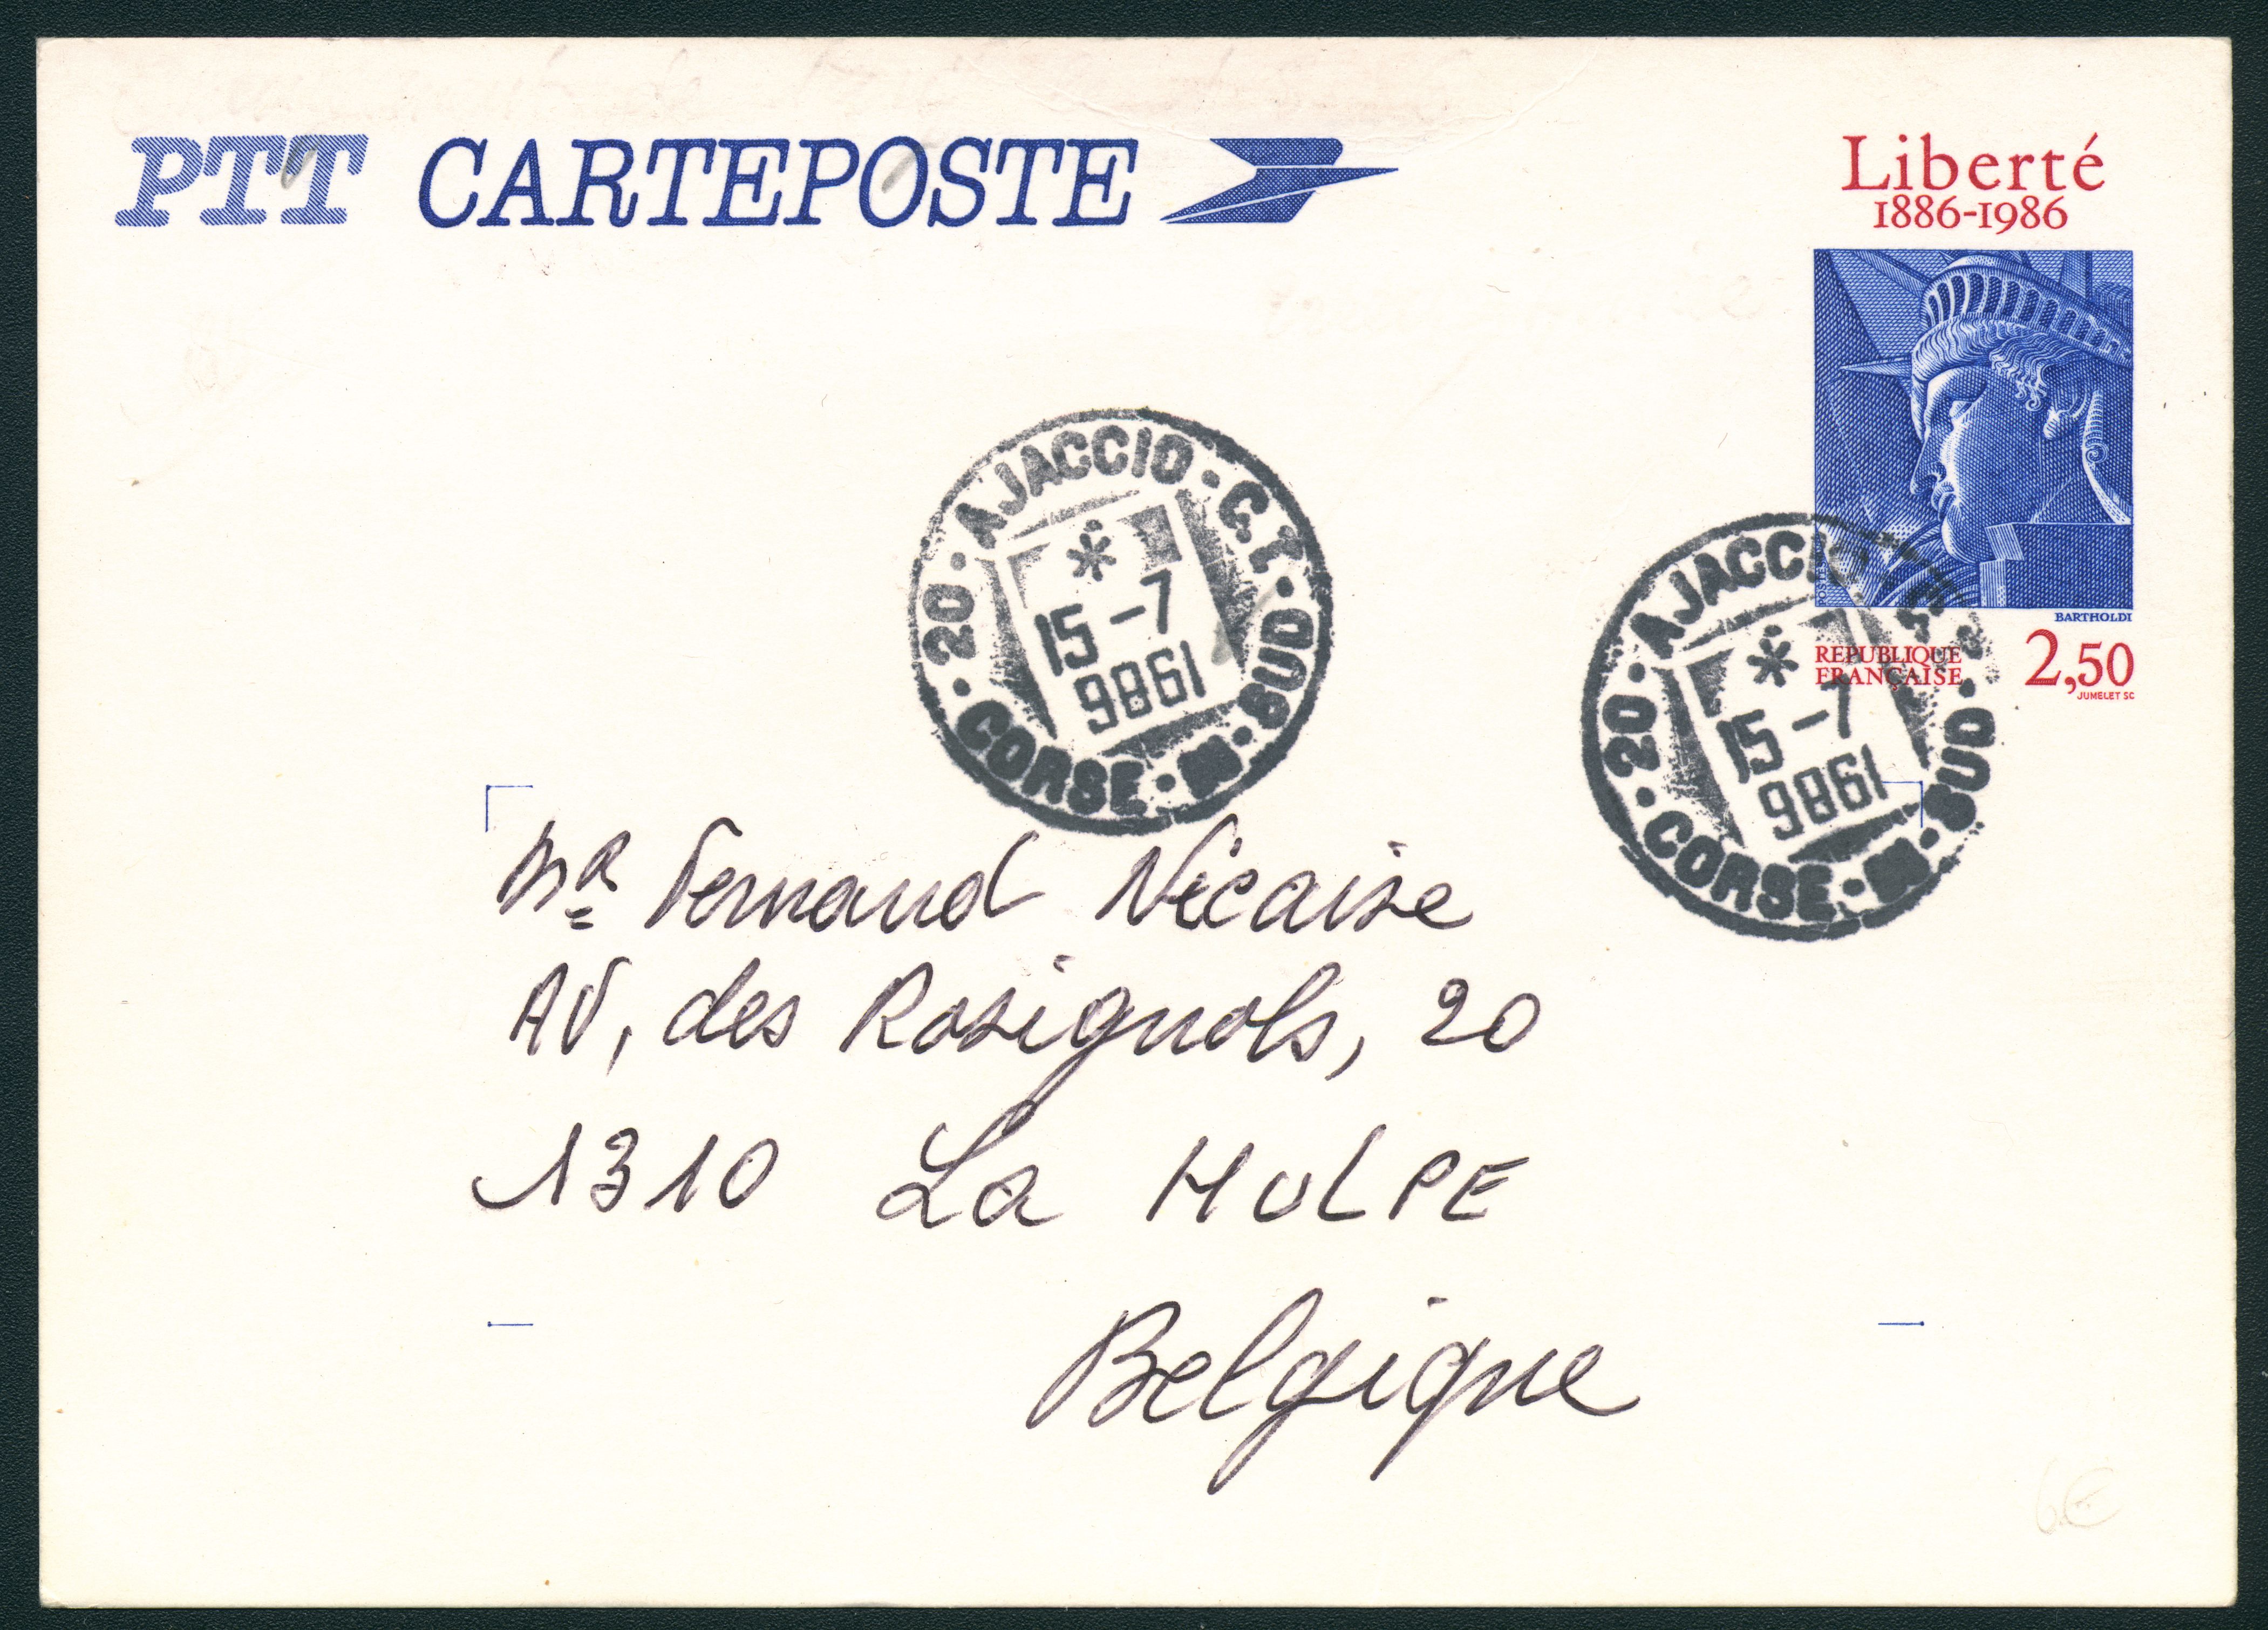 PTT CARTEPOSTE
Liberté
1886-1986
BARTHOLDI
REPUBLIQUE
FRANÇAISE
2,50
JUMELET SC
20 · AJACCIO · C.T.
*
15 -7
1986
CORSE · DU · SUD
20 · AJACCIO
*
15 -7
1986
CORSE · DU · SUD
Mr Fernand Nicaise
AV, des Rosignols, 20
1310 La HULPE
Belgique
6€